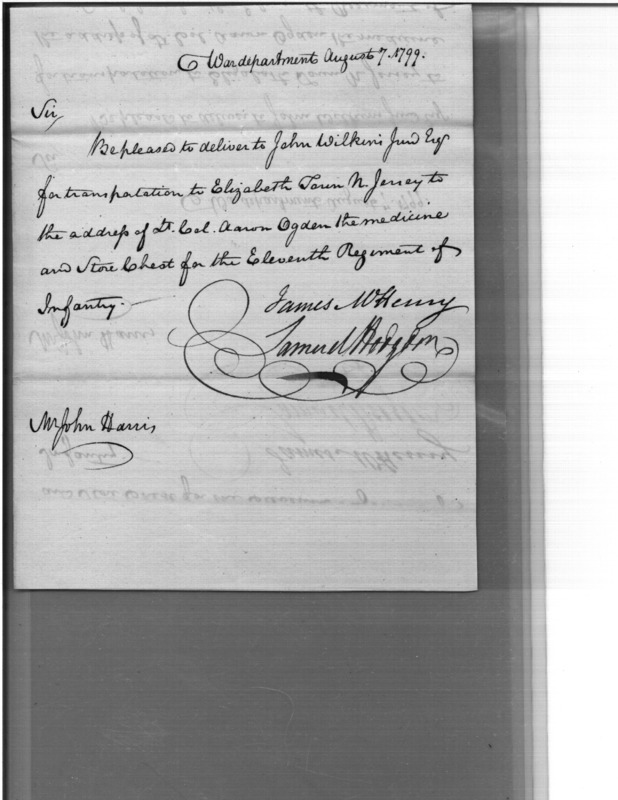 War department August 7. 1799.
Sir,
Be pleased to deliver to John Wilkins Junr Esqr
for transpotation to Elizabeth Town N. Jersey to
the address of Lt. Col. Aaron Ogden the medicine
and Store Chest for the Eleventh Regiment of
Infantry.
James McHenry
Samuel Hodgdon
Mr John Harris